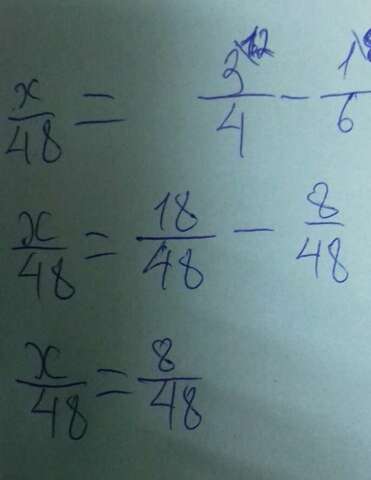 x/48 = 3\12/4 - 1\8/6
x/48 = 18/48 - 8/48
x/48 = 8/48